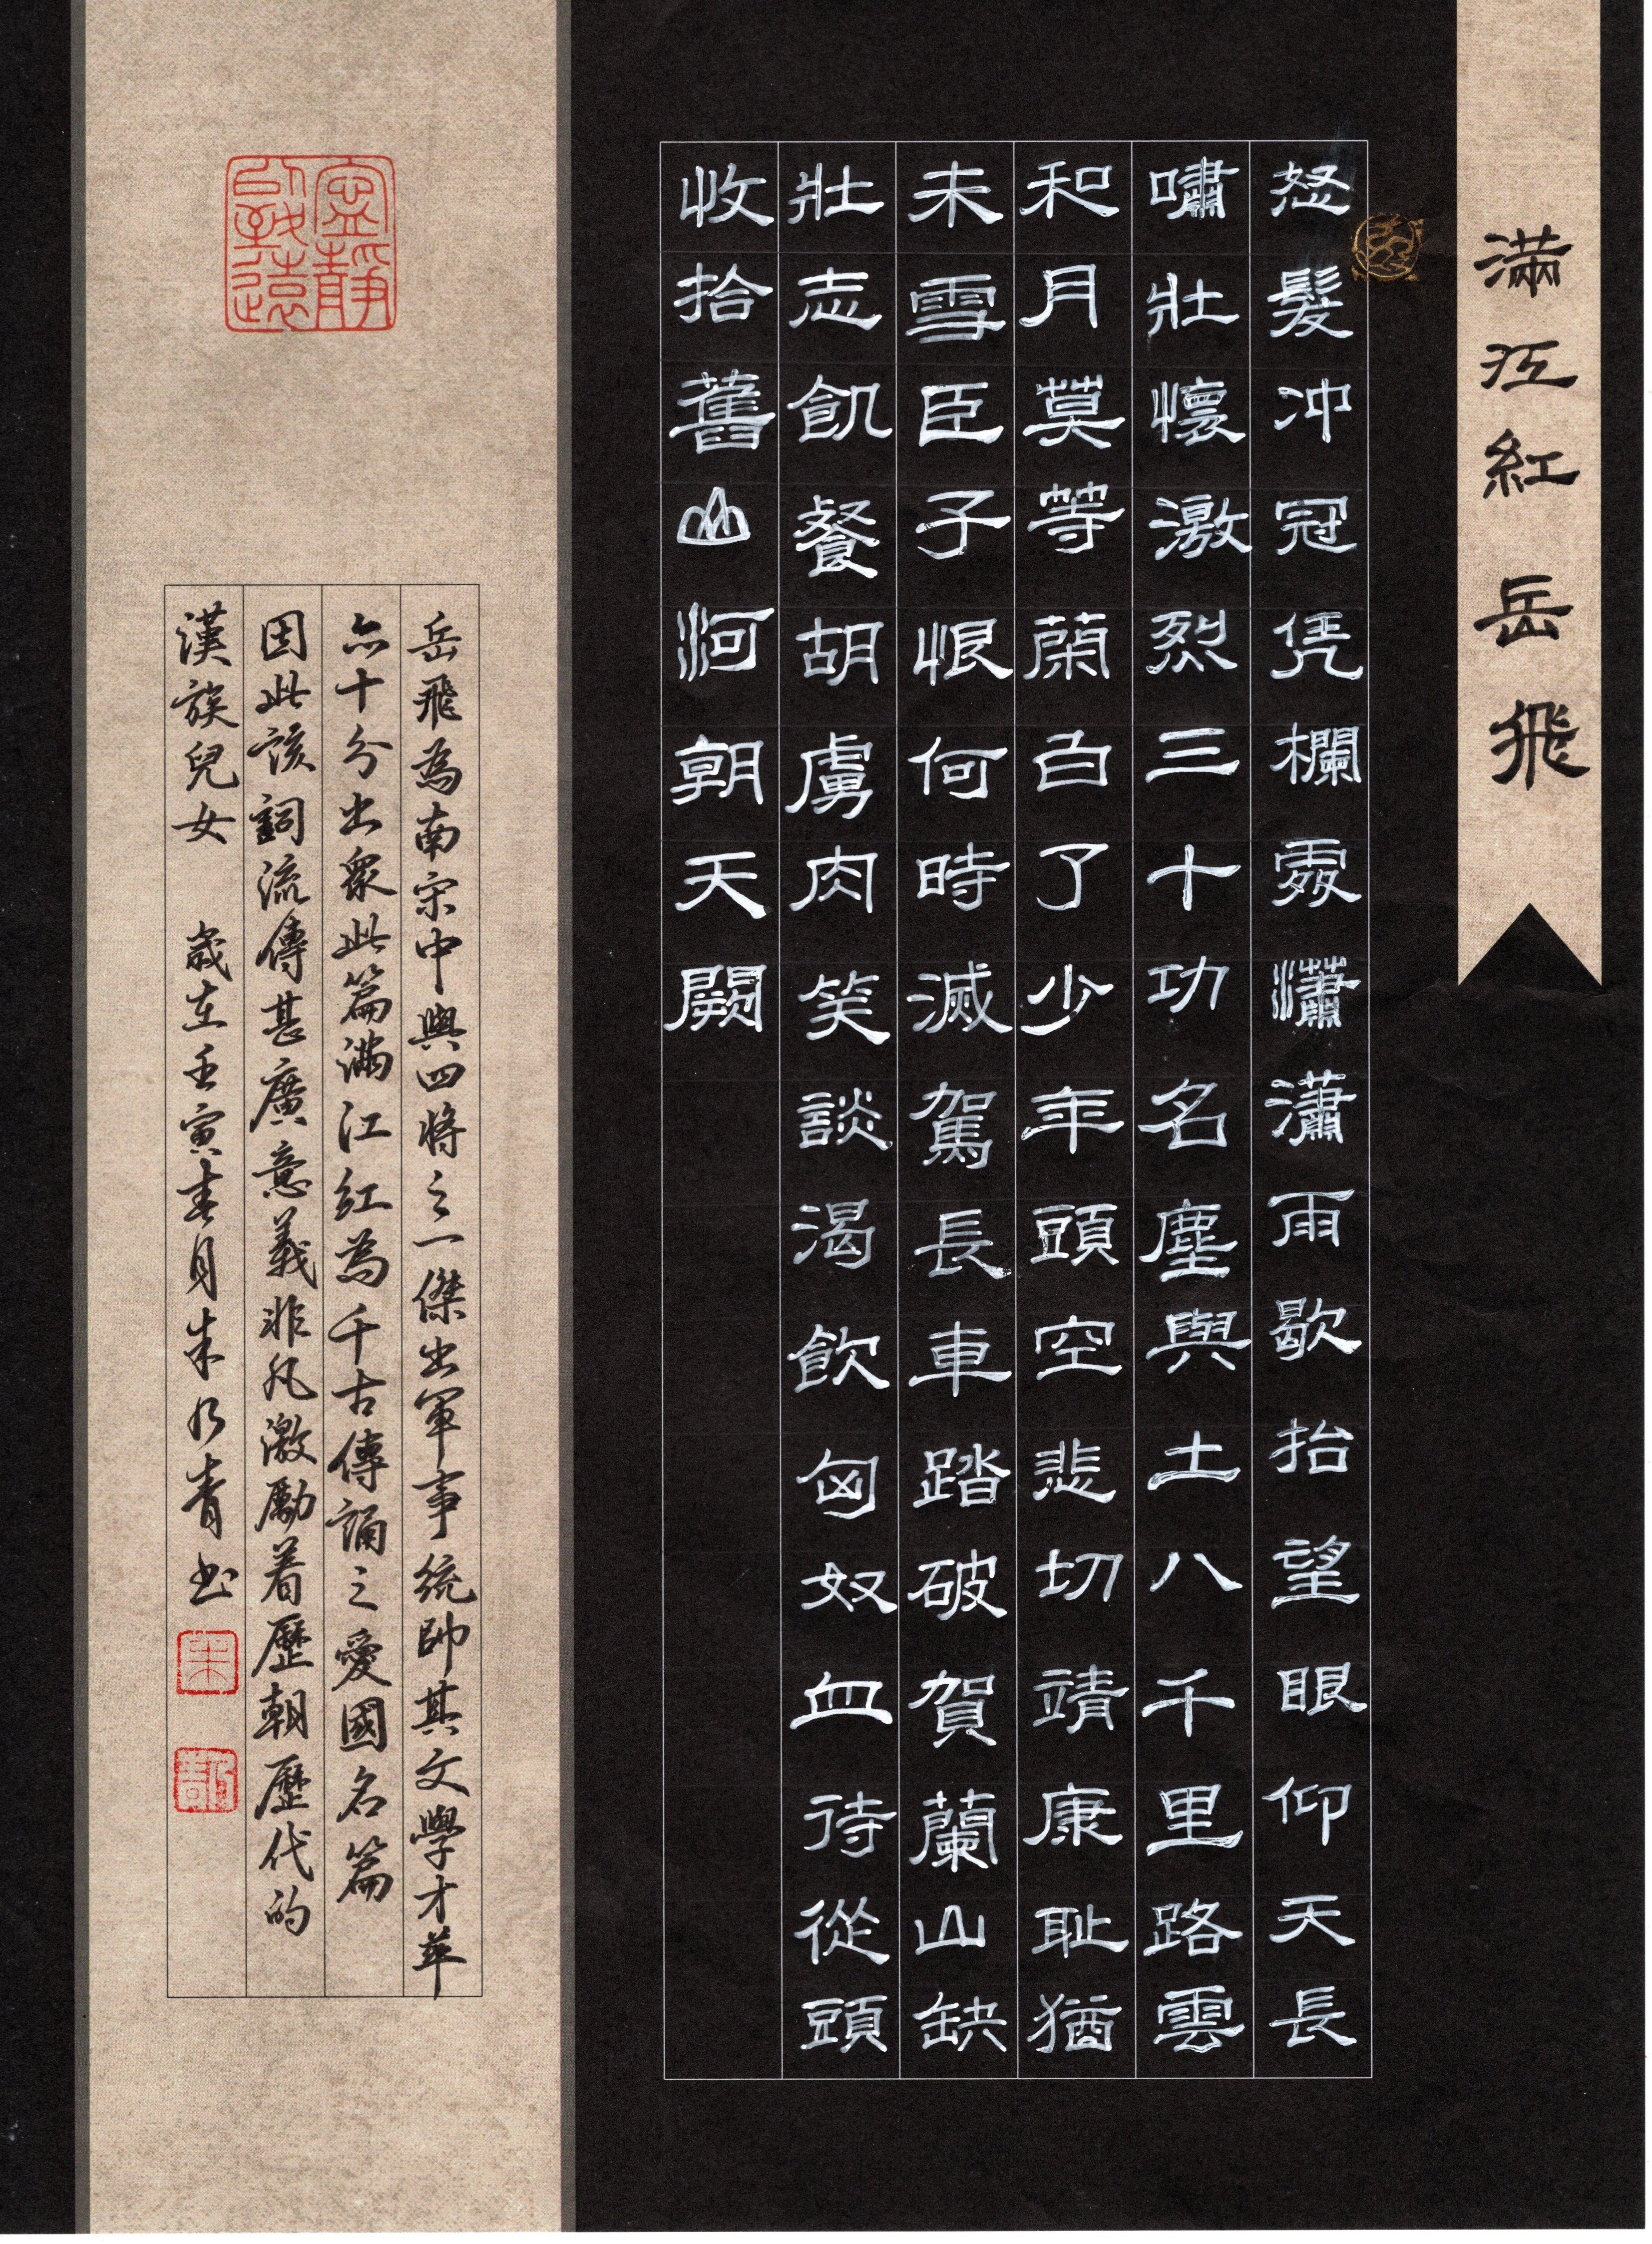 滿江紅 岳飛
怒髮冲冠凭欄處瀟瀟雨歇抬望眼仰天長
嘯壯懷激烈三十功名塵與土八千里路雲
和月莫等閑白了少年頭空悲切靖康耻猶
未雪臣子恨何時滅駕長車踏破賀蘭山缺
壯志飢餐胡虜肉笑談渴飲匈奴血待從頭
收拾舊山河朝天闕
寧靜致遠
岳飛為南宋中興四將之一傑出軍事統帥其文學才華
亦十分出衆此篇滿江紅為千古傳誦之愛國名篇
因此該詞流傳甚廣意義非凡激勵着歷朝歷代的
漢族兒女 歲在壬寅春月朱乃青书
朱